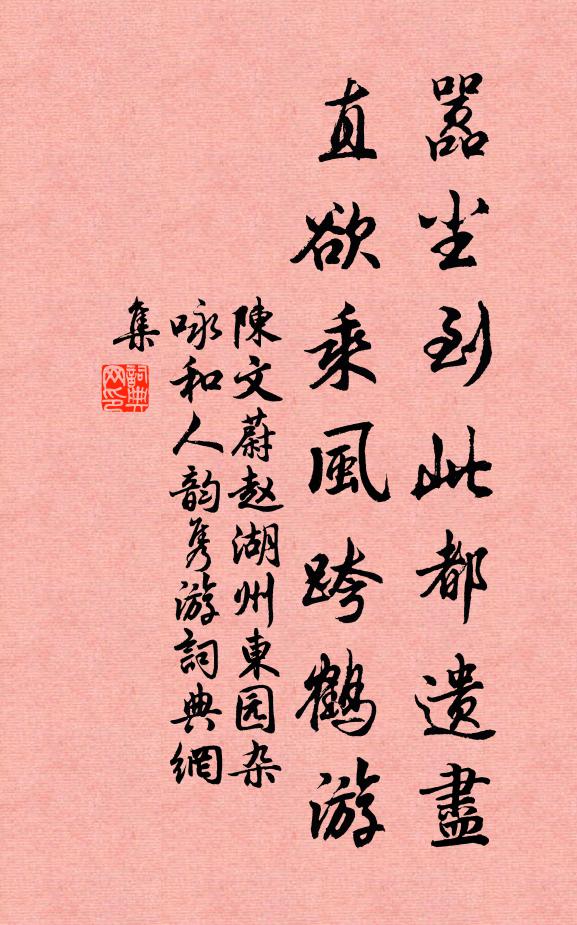 嚣尘到此都遗盡
直欲乘風跨鹤游
陳文蔚赵湖州東园杂
咏和人韵隽游詞典網
集
詞典
网印